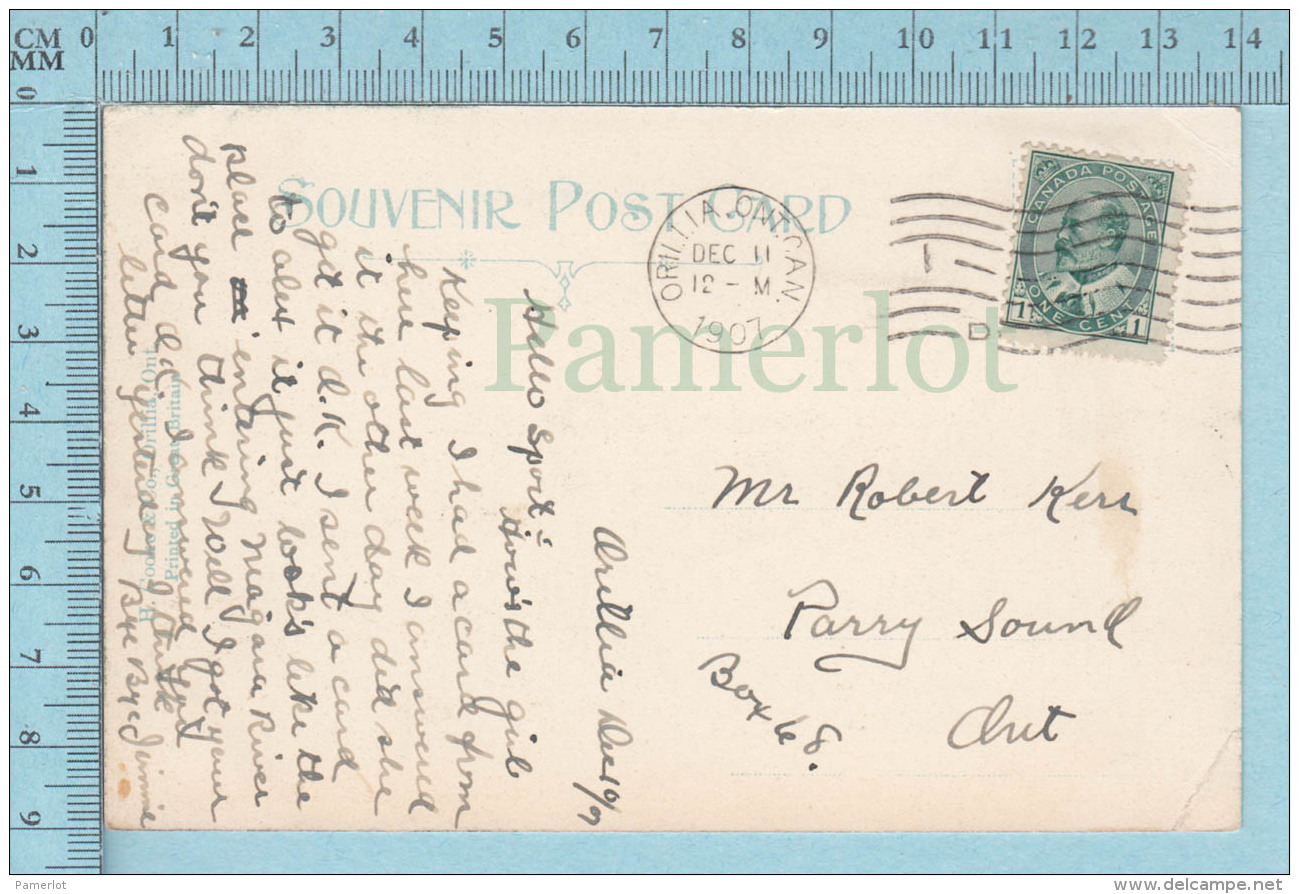 CM 0 1 2 3 4 5 6 7 8 9 10 11 12 13 14
MM
0 1 2 3 4 5 6 7 8 9
SOUVENIR POST CARD
ORILLIA, ONT. CAN.
DEC 11
12 - M
1907
CANADA POSTAGE
1 ONE CENT 1
Pamerlot
Mr Robert Kerr
Parry Sound
Box 68.
Ont
Orillia Dec 10/07
Hello Sport:
How's the girl
keeping I had a card from
her last week I answered
it the other day did she
get it O.K. I sent a card
to alex it just look's like the
place entering Magana River
don't you think I will I got your
card did I answered your
letter yesterday I think
Bye Bye Jimmie
H. Cooke & Co., Orillia, Ont.
Printed in Great Britain
Pamerlot
www.delcampe.net